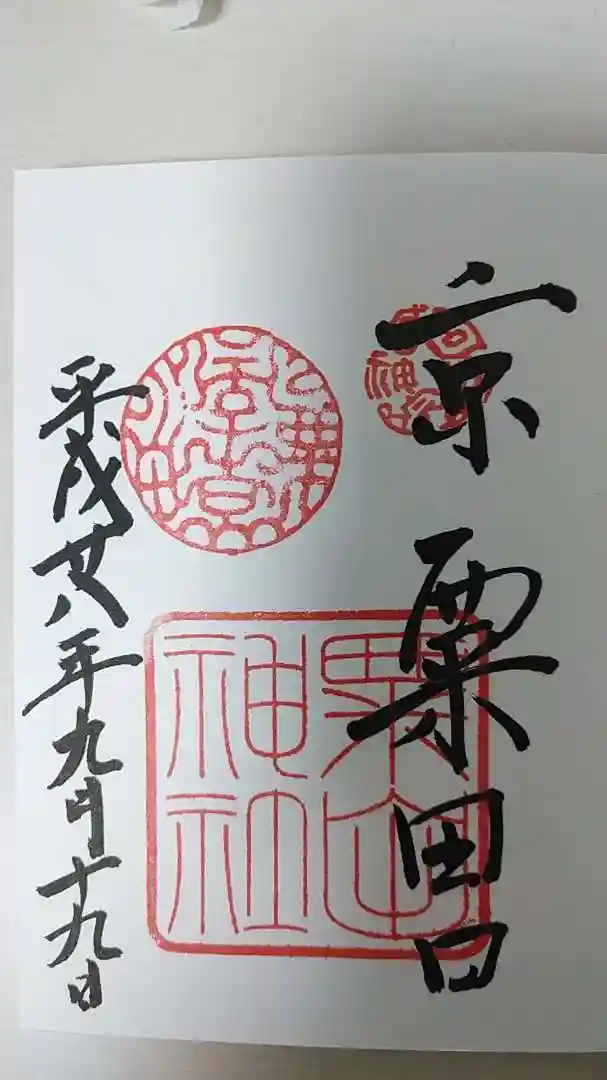 京 粟田口
粟田
神社
平成廿八年九月十九日